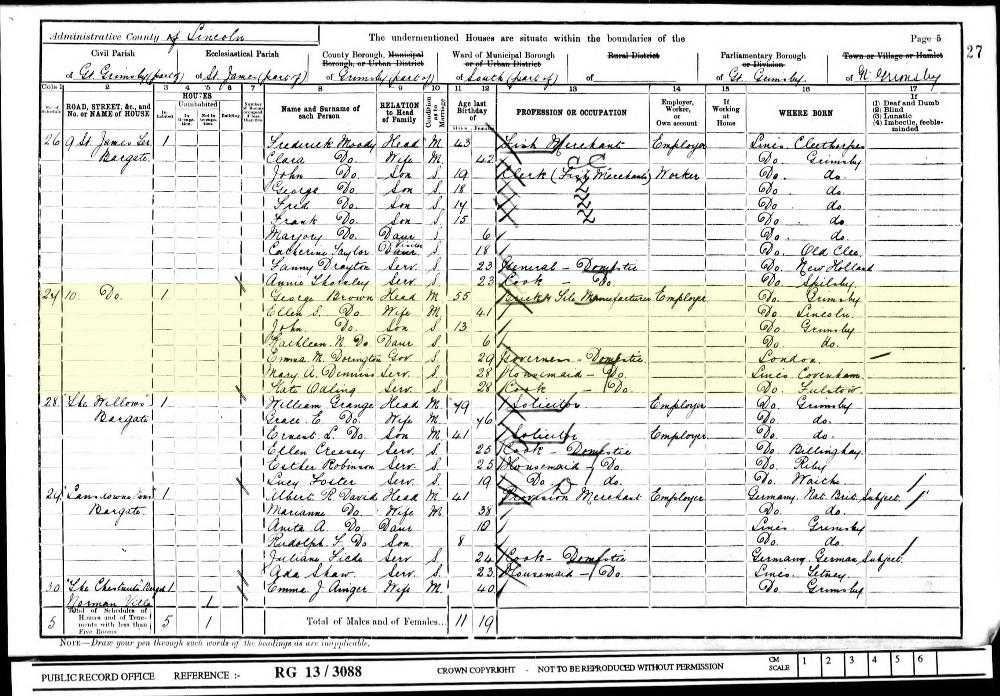 Administrative County of Lincoln
The undermentioned Houses are situate within the boundaries of the
Page 5
27
Civil Parish
Ecclesiastical Parish
County Borough, Municipal Borough, or Urban District
Ward of Municipal Borough or of Urban District
Rural District
Parliamentary Borough or Division
Town or Village or Hamlet
of Gt. Grimsby (part of)
of St. James (part of)
of Grimsby (part of)
of South (part of)
of
of Gt. Grimsby.
of N. Grimsby
Cols. 1 2 3 4 5 6 7 8 9 10 11 12 13 14 15 16 17
No. of Schedule
ROAD, STREET, &c., and No. or NAME of HOUSE
HOUSES
Inhabited
Uninhabited
In Occupation
Not in Occupation
Building
Number of Rooms occupied if less than five
Name and Surname of each Person
RELATION to Head of Family
Condition as to Marriage
Age last Birthday of
Males Females
PROFESSION OR OCCUPATION
Employer, Worker, or Own account
If Working at Home
WHERE BORN
If
(1) Deaf and Dumb
(2) Blind
(3) Lunatic
(4) Imbecile, feeble-minded
26 9 St. James Ter. 1 Frederick Moody Head M. 43 Fish Merchant Employer Lincs Cleethorpes
Bargate Clara Do. Wife M. 42 Do. Grimsby
John Do. Son S. 19 Clerk (Fish Merchants) Worker Do. do.
George Do. Son S. 18 Do. do.
Fred Do. Son S. 14 Do. do.
Frank Do. Son S. 15 Do. do
Marjory Do. Daur S. 6 Do. do.
Catherine Taylor Daur Visitor S. 18 Do. Old Clee.
Fanny Drayton Serv. S. 23 General - Domestic Do. New Holland
Annie Thornley Serv. S. 23 Cook - Do Do. Spilsby
27 10 Do. 1 George Brown Head M. 55 Brick & Tile Manufacturer Employer Do. Grimsby
Ellen S. Do. Wife M. 41 Do. Lincoln.
John. Do. Son S. 13 Do. Grimsby
Kathleen. N. Do Daur S. 6 Do. do.
Emma M. Dorington Gov. S. 29 Governess - Domestic London
Mary A. Dennis Serv. S. 28 Housemaid - Do. Lincs. Covenham
Kate Odling Serv. S. 28 Cook - Do. Do. Fulstow
28 "The Willows" 1 William Grange Head M. 79 Solicitor Employer Do. Grimsby
Bargate Grace E. Do. Wife M. 76 Do. do.
Ernest L. Do. Son M. 41 Solicitor Employer Do. do.
Ellen Creasey Serv. S. 25 Cook - Domestic Do. Billinghay.
Esther Robinson Serv. S. 25 Housemaid - Do. Do. Riby
Lucy Foster Serv. S. 19 Do do. Do. Waithe
29 1 Albert R. David Head M 41 Provision Merchant Employer Germany. Nat. Brit. Subject.
Bargate. Marianne Do. Wife M. 38 Do. do.
Anita A. Do. Daur 10 Lincs Grimsby
Rudolph F. Do Son 8 Do. do.
Juliane Serv S. 24 Cook - Domestic Germany. German Subject.
Ada Shaw Serv. S. 23 Housemaid - Do. Lincs.
30 "The Chestnuts" 1 Emma J. Ainger Wife M. 40 Do. Grimsby
Norman Villa 1
5 Total of Schedules of Houses and of Tenements with less than Five Rooms 5 1 Total of Males and of Females... 11 19
NOTE—Draw your pen through such words of the headings as are inapplicable.
PUBLIC RECORD OFFICE REFERENCE :- RG 13 / 3088 CROWN COPYRIGHT - NOT TO BE REPRODUCED WITHOUT PERMISSION CM SCALE 1 2 3 4 5 6